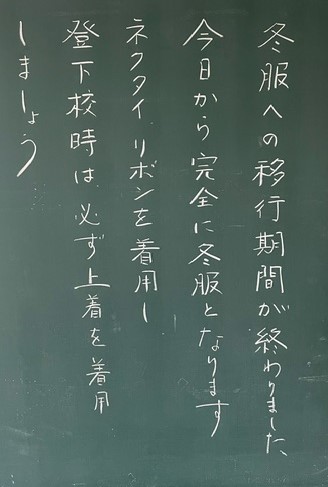 冬服への移行期間が終わりました
今日から完全に冬服となります
ネクタイ、リボンを着用し
登下校時は必ず上着を着用
しましょう